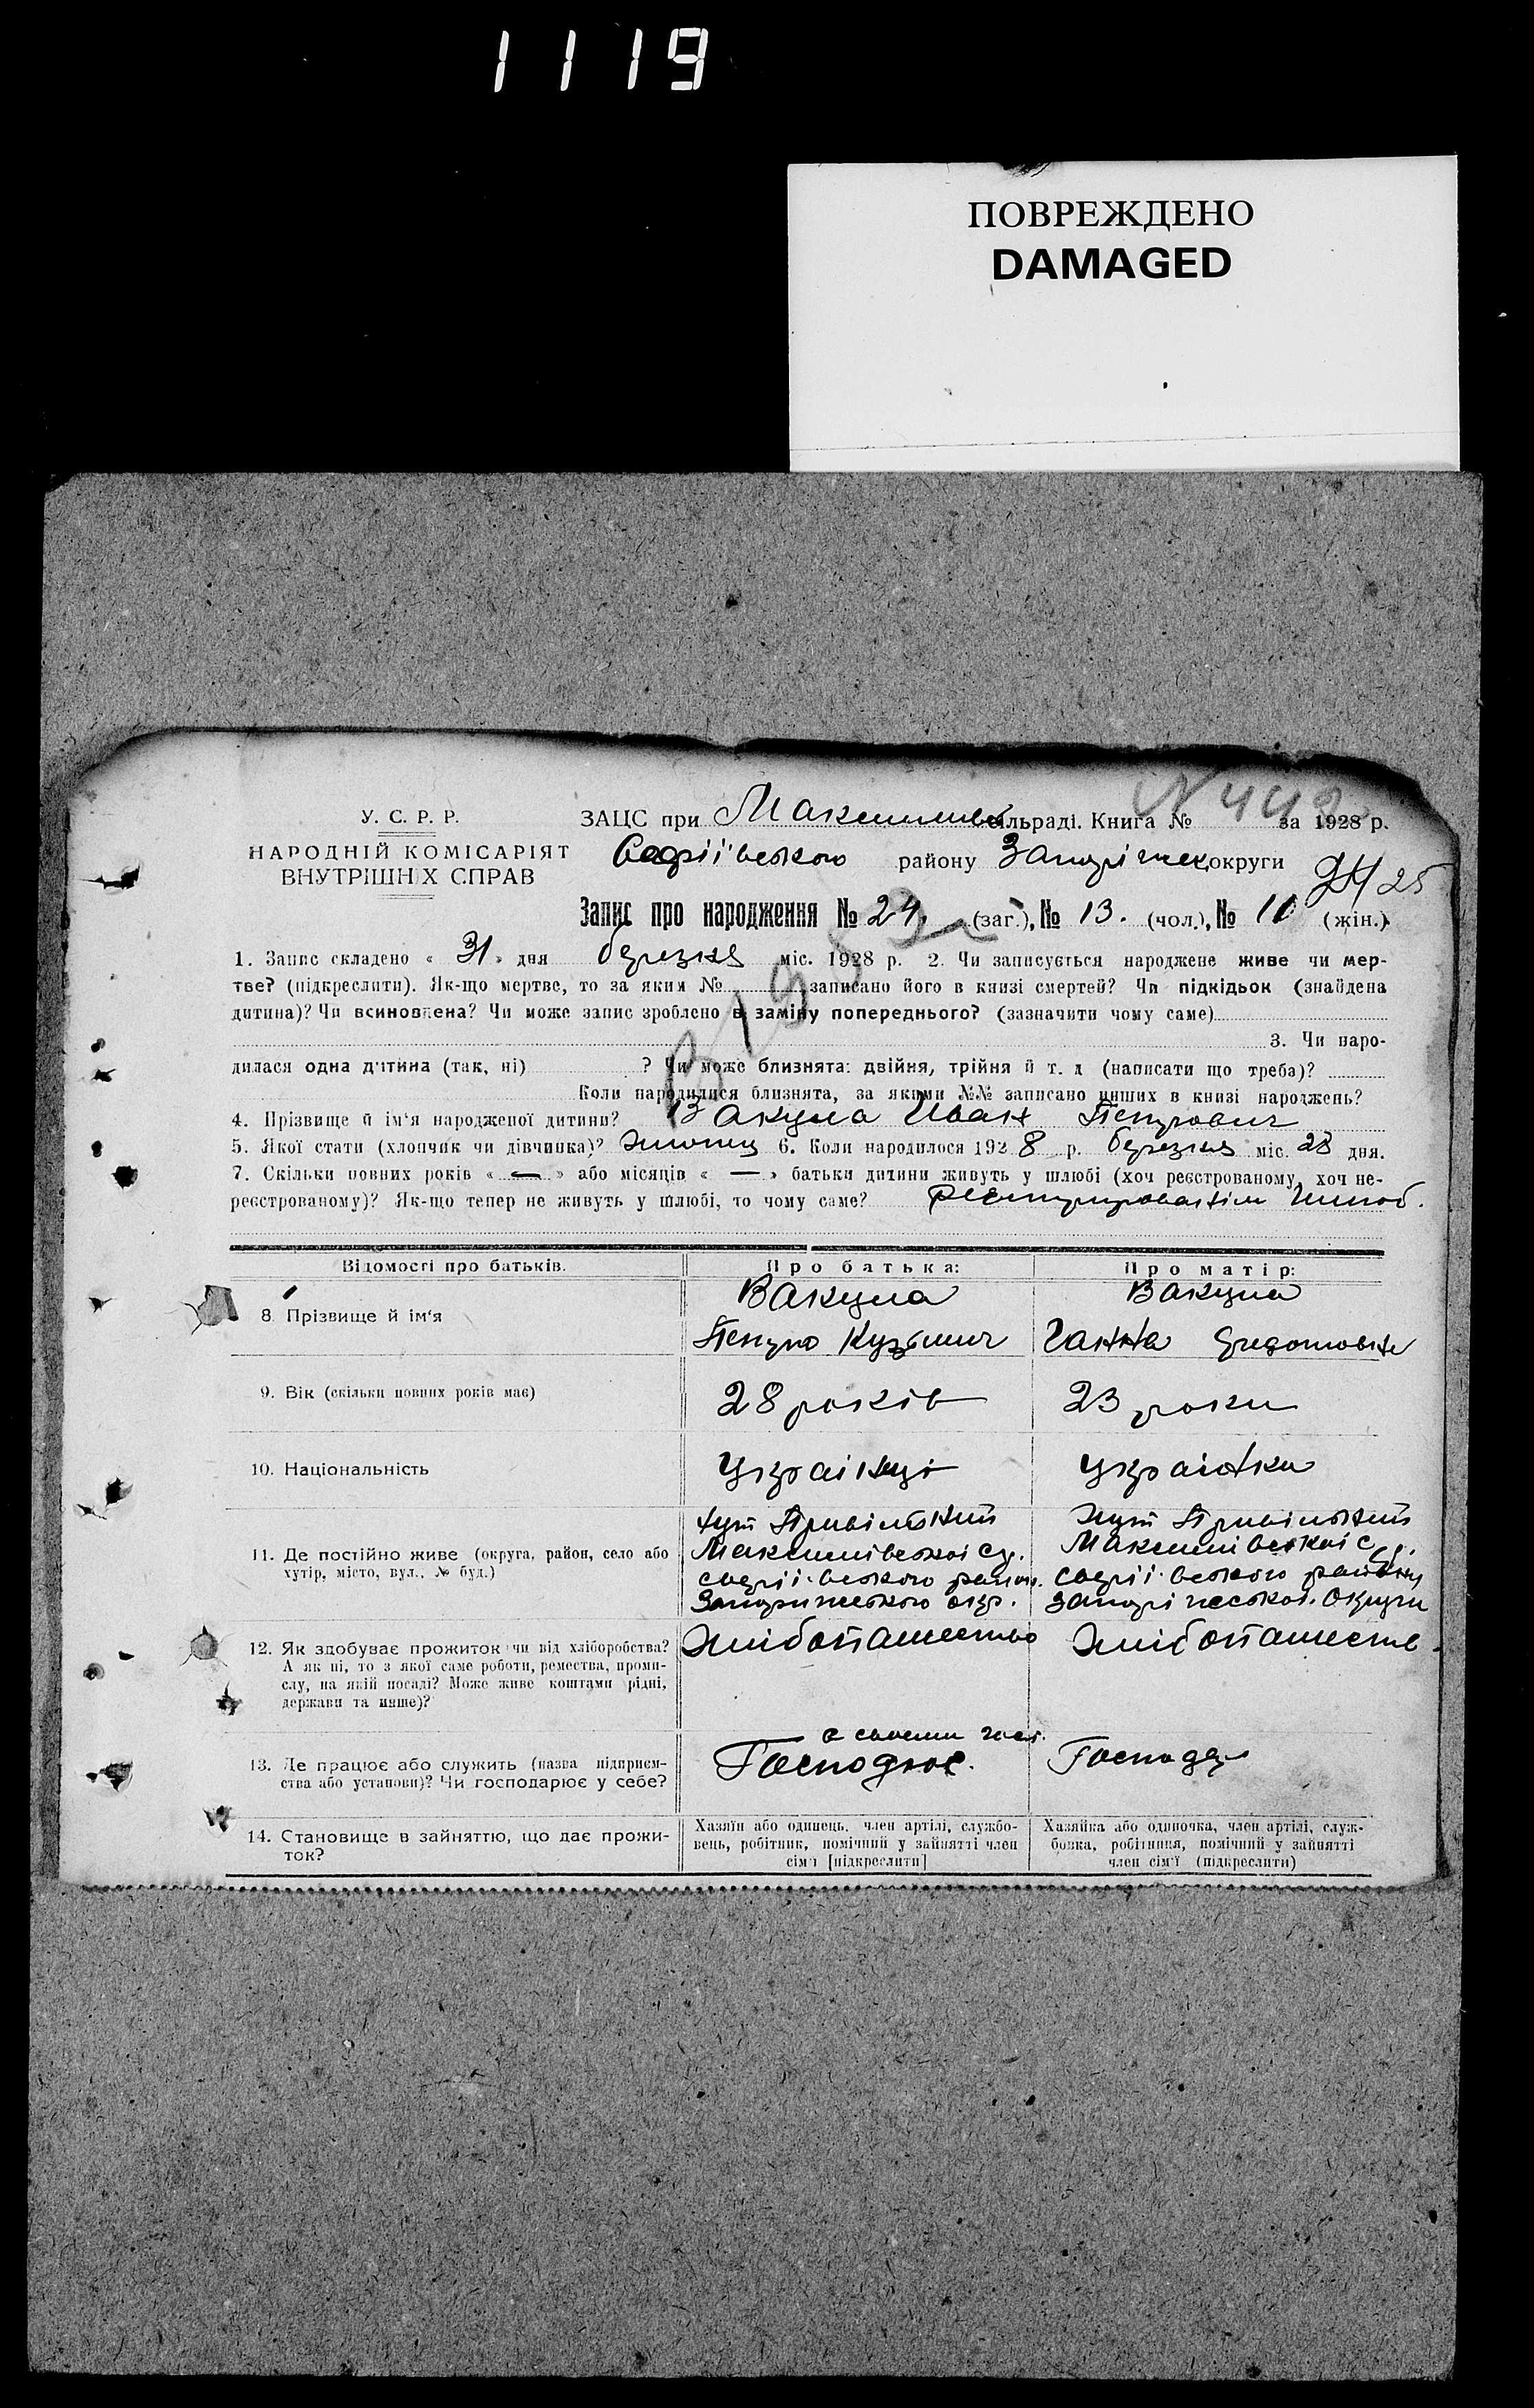 1119
ПОВРЕЖДЕНО
DAMAGED
№ 442
У. С. Р. Р.
НАРОДНІЙ КОМІСАРІЯТ
ВНУТРІШНІХ СПРАВ
ЗАЦС при Максимівс сільраді. Книга № за 1928 р.
Софіївського району Запоріжськ округи
25
Запис про народження № 24 (заг.), № 13. (чол.), № 11 (жін.)
1. Запис складено « 31 » дня березня міс. 1928 р. 2. Чи записується народжене живе чи мер-
тве? (підкреслити). Як-що мертве, то за яким № записано його в книзі смертей? Чи підкідьок (знайдена
дитина)? Чи всиновлена? Чи може запис зроблено в заміну попереднього? (зазначити чому саме)
3. Чи наро-
дилася одна дитина (так, ні) ? Чи може близнята: двійня, трійня й т. д (написати що треба)?
Коли народилися близнята, за якими №№ записано инших в книзі народжень?
4. Прізвище й ім‘я народженої дитини? Вакула Иван Петрович
5. Якої стати (хлопчик чи дівчинка)? Хлопец 6. Коли народилося 192 8 р. березня міс. 28 дня.
7. Скільки повних років « — » або місяців « — » батьки дитини живуть у шлюбі (хоч реєстрованому, хоч не-
реєстрованому)? Як-що тепер не живуть у шлюбі, то чому саме? шлюб.
Відомості про батьків. Про батька: Про матір:
8. Прізвище й ім‘я
Вакула
Петро Кузьмич
Вакула
Ганна Федотовна
9. Вік (скільки повних років має) 28 років 23 роки
10. Національність Українці Українка
11. Де постійно живе (округа, район, село або
хутір, місто, вул., № буд.)
хут Привільний
Максимівської с.
Софіївського район.
Запорижського окр.
Хут Привільний
Максимівської с.
Софіївського району
Запоріжської округи
12. Як здобуває прожиток чи від хліборобства?
А як ні, то з якої саме роботи, ремества, проми-
слу, на якій посаді? Може живе коштами рідні,
держави та инше)?
Хлібопашество
Хлібопашеств
13. Де працює або служить (назва підприєм-
ства або установи)? Чи господарює у себе?
в своєму
Господює.
14. Становище в зайняттю, що дає прожи-
ток?
Хазяїн або одинець, член артілі, службо-
вець, робітник, помічний у зайнятті член
сім‘ї [підкреслити]
Хазяйка або одиночка, член артілі, служ-
бовка, робітниця, помічний у зайнятті
член сім‘ї (підкреслити)